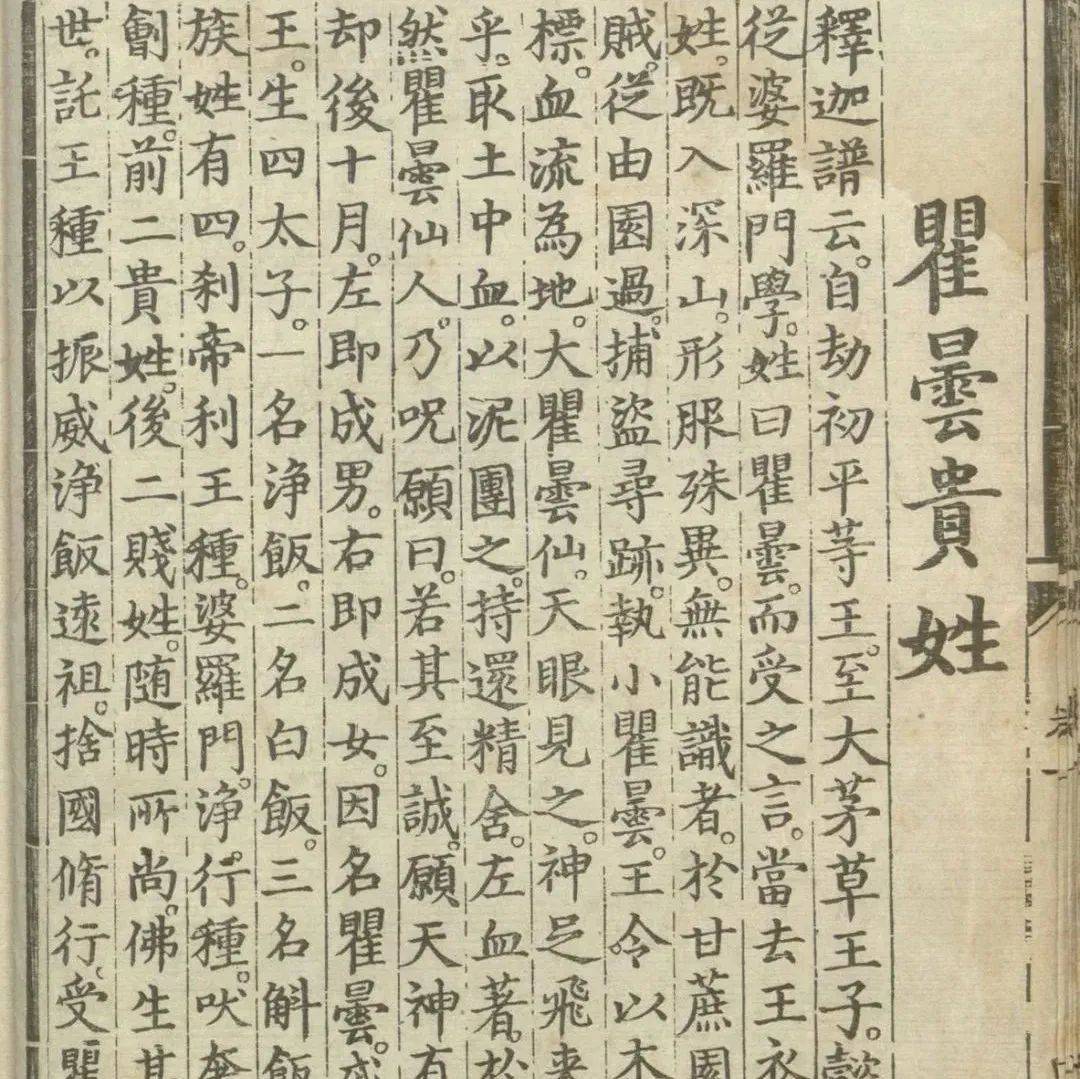 瞿曇貴姓
釋迦譜云。自劫初平等王。至大茅草王子。懿
從婆羅門學。姓曰瞿曇。而受之言。當去王衣
姓。既入深山。形服殊異。無能識者。於甘蔗園
賊。從由園過。捕盜尋跡。執小瞿曇。王令以木
標。血流為地。大瞿曇仙。天眼見之。神足飛来
乎。取土中血。以泥團之。持還精舍。左血著。於
然瞿曇仙人。乃呪願曰。若其至誠。願天神有
却後十月。左即成男。右即成女。因名瞿曇。
王。生四太子。一名淨飯。二名白飯。三名斛飯
族姓有四。刹帝利王種。婆羅門。淨行種。吠奢
劊種。前二貴姓。後二賤姓。随時所尚。佛生其
世。託王種以振威淨飯遠祖。捨國脩行。受瞿